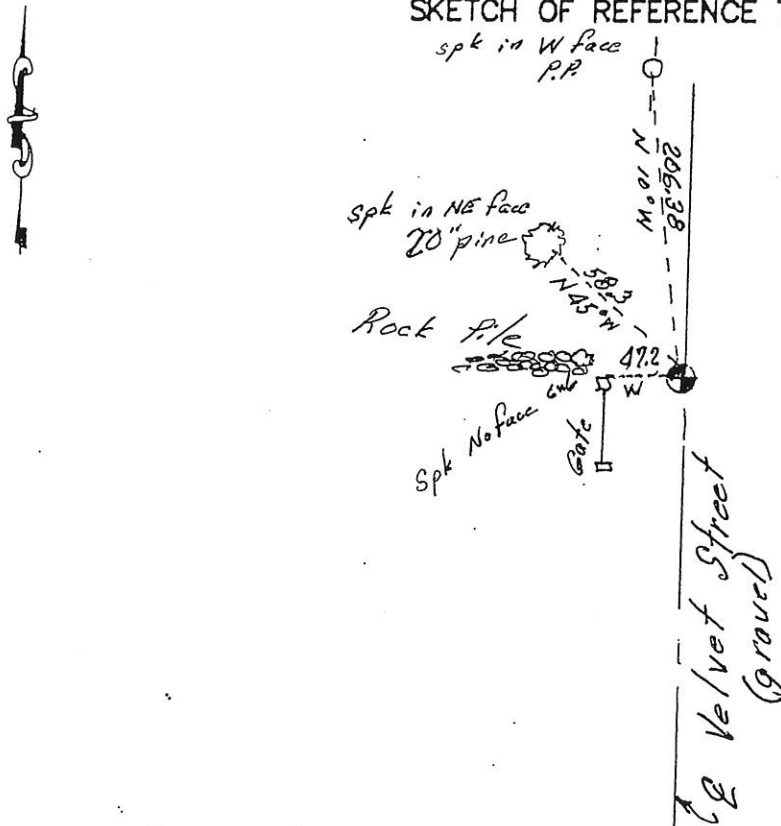 SKETCH OF REFERENCE T
spk in W face
P.P.
N 10° W
206.38
spk in NE face
20" pine
58.3
N 45° W
Rock Pile
47.2
W
Spk No face
Gate
Velvet Street
(gravel)